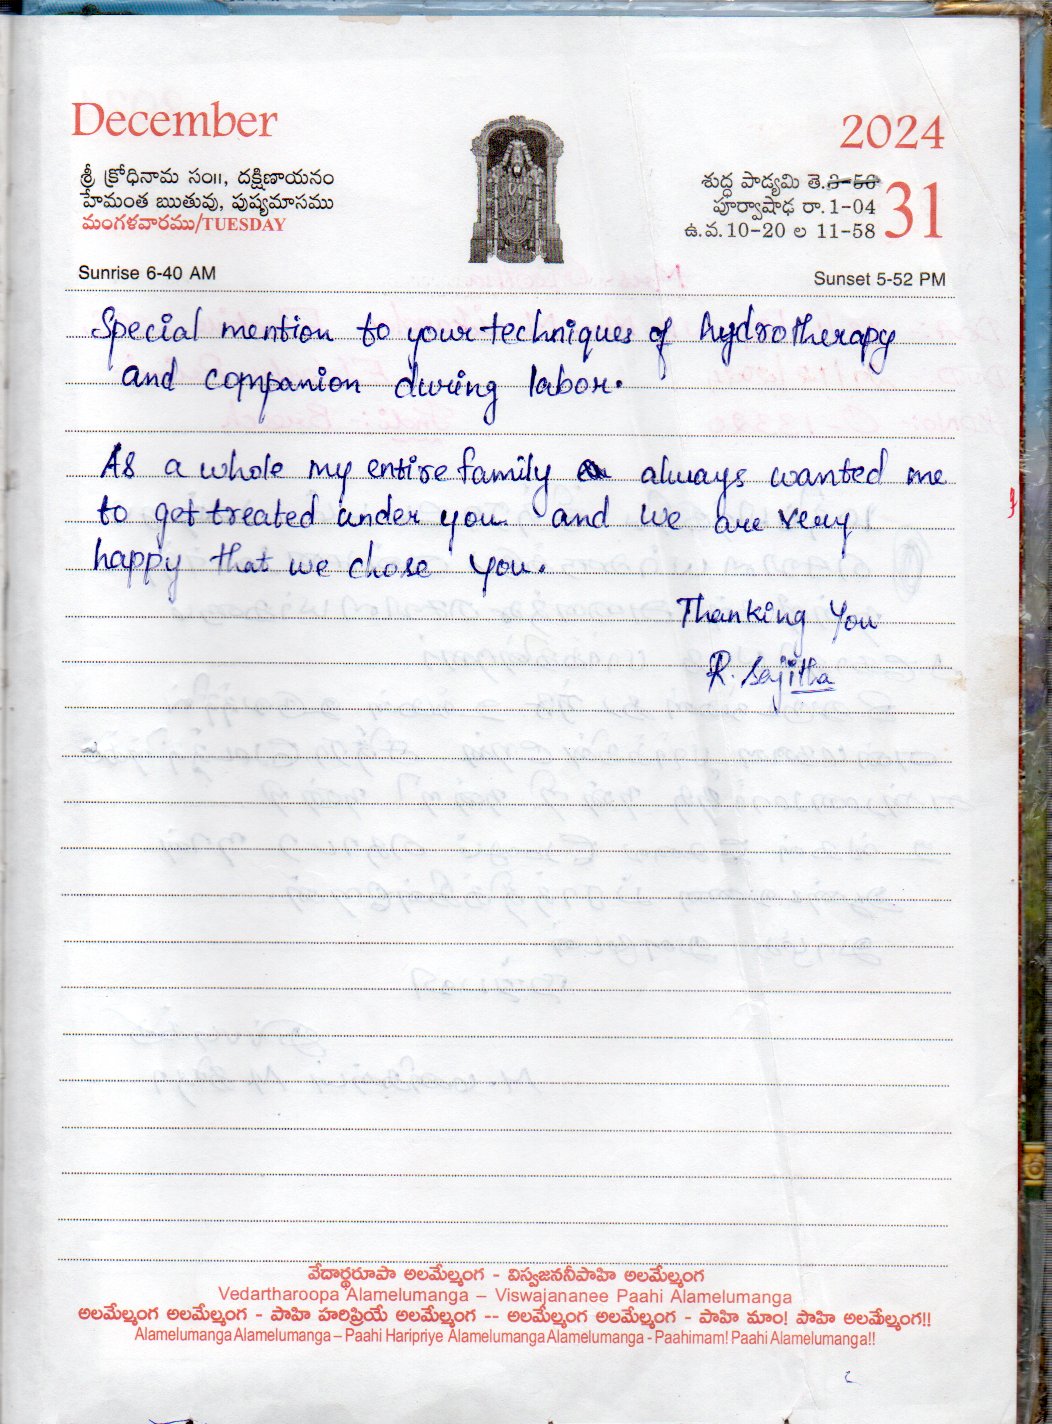 December
2024
శ్రీ క్రోధినామ సం॥, దక్షిణాయనం
హేమంత ఋతువు, పుష్యమాసము
మంగళవారము/TUESDAY
శుద్ధ పాడ్యమి తె.3-56
పూర్వాషాఢ రా.1-04
ఉ.వ.10-20 ల 11-58
31
Sunrise 6-40 AM
Sunset 5-52 PM
Special mention to your techniques of hydrotherapy
and companion during labor.
As a whole my entire family always wanted me
to get treated under you and we are very
happy that we chose you.
Thanking You
R. Sajitha
వేదార్థరూపా అలమేల్మంగ - విస్వజననీపాహి అలమేల్మంగ
Vedartharoopa Alamelumanga – Viswajananee Paahi Alamelumanga
అలమేల్మంగ అలమేల్మంగ - పాహి హరిప్రియే అలమేల్మంగ -- అలమేల్మంగ అలమేల్మంగ - పాహి మాం! పాహి అలమేల్మంగ!!
Alamelumanga Alamelumanga – Paahi Haripriye Alamelumanga Alamelumanga - Paahimam! Paahi Alamelumanga!!